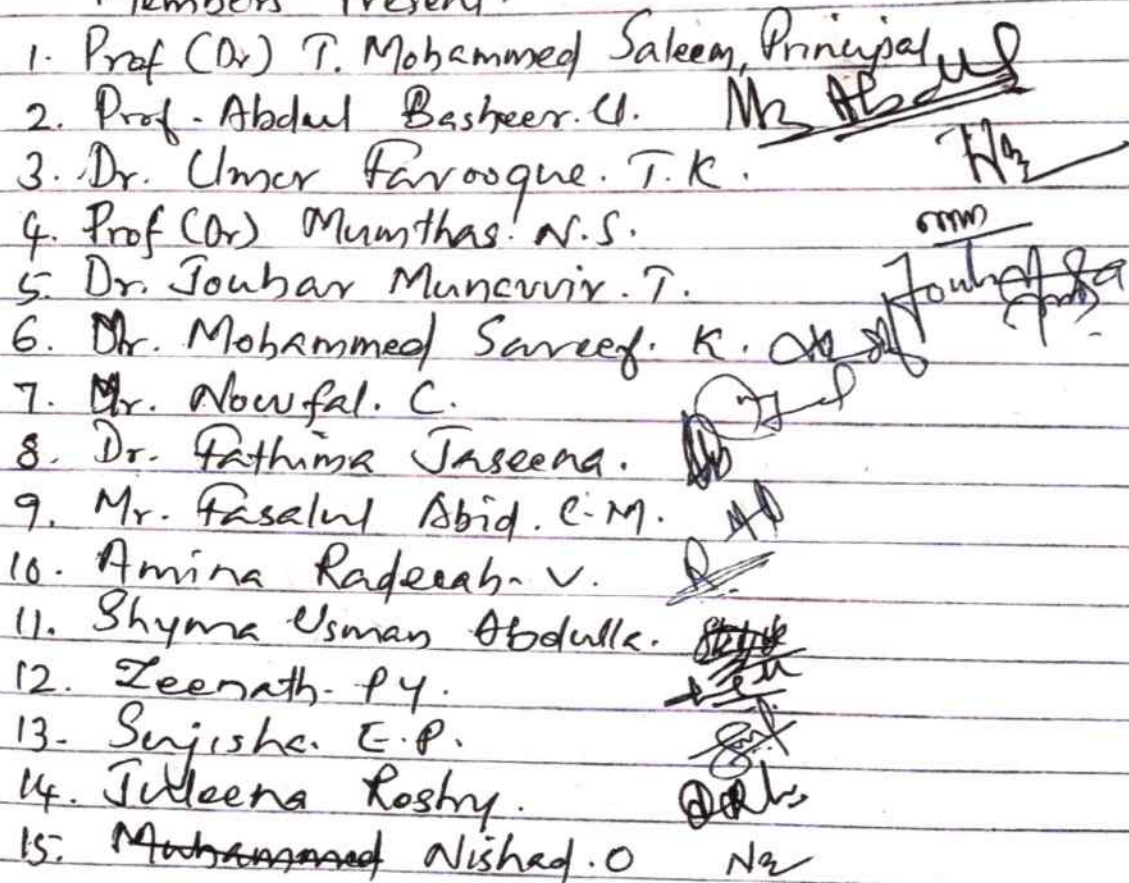 Members Present
1. Prof (Dr) T. Mohammed Saleem, Principal
2. Prof. Abdul Basheer. U.
3. Dr. Umer Farooque. T.K.
4. Prof (Dr) Mumthas. N.S.
5. Dr. Jouhar Munavvir. T.
6. Mr. Mohammed Sareef. K.
7. Mr. Nowfal. C.
8. Dr. Fathima Jaseena.
9. Mr. Fasalul Abid. C.M.
10. Amina Radeeah. V.
11. Shyma Usman Abdulla.
12. Zeenath. P Y.
13. Sujisha. E.P.
14. Julleena Roshy.
15. Muhammed Nishad. O